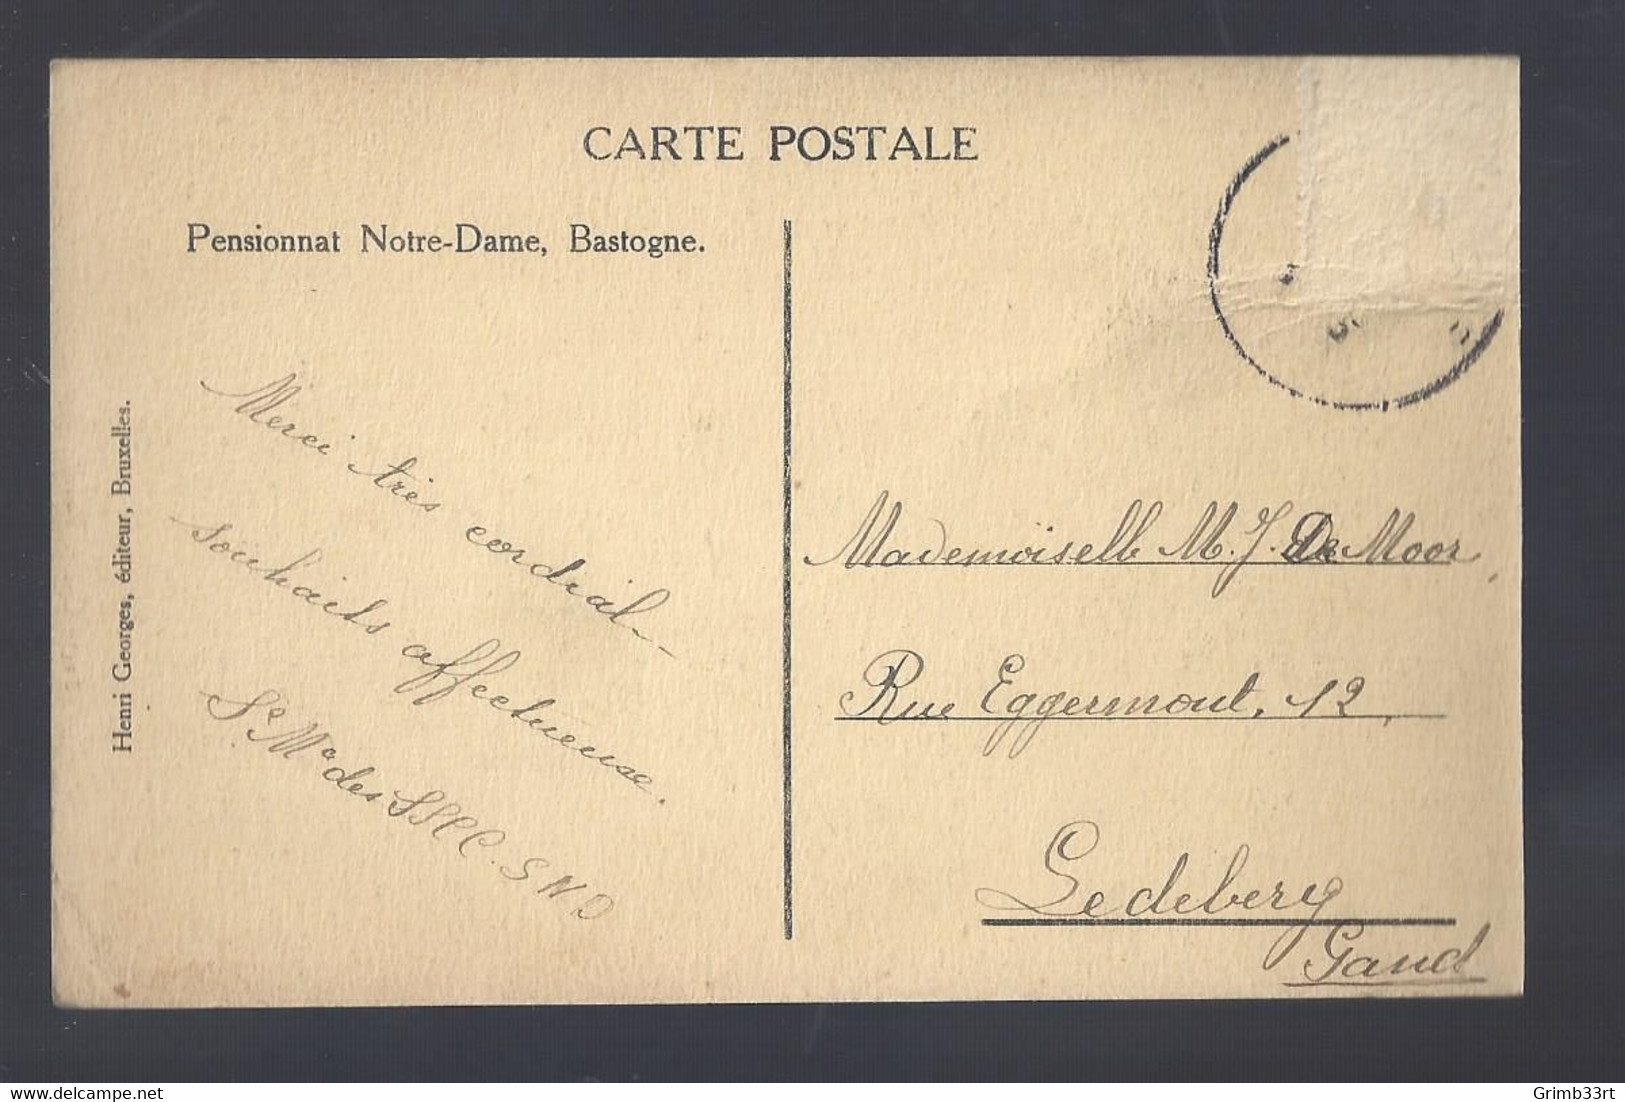 CARTE POSTALE
Pensionnat Notre-Dame, Bastogne.
Henri Georges, éditeur, Bruxelles.
Merci très cordial-
souhaits affectueuse.
Sr Ma des SSCC. S N D
Mademoiselle M. J. De Moor,
Rue Eggermont, 12,
Ledeberg
Gand
www.delcampe.net
Grimb33rt